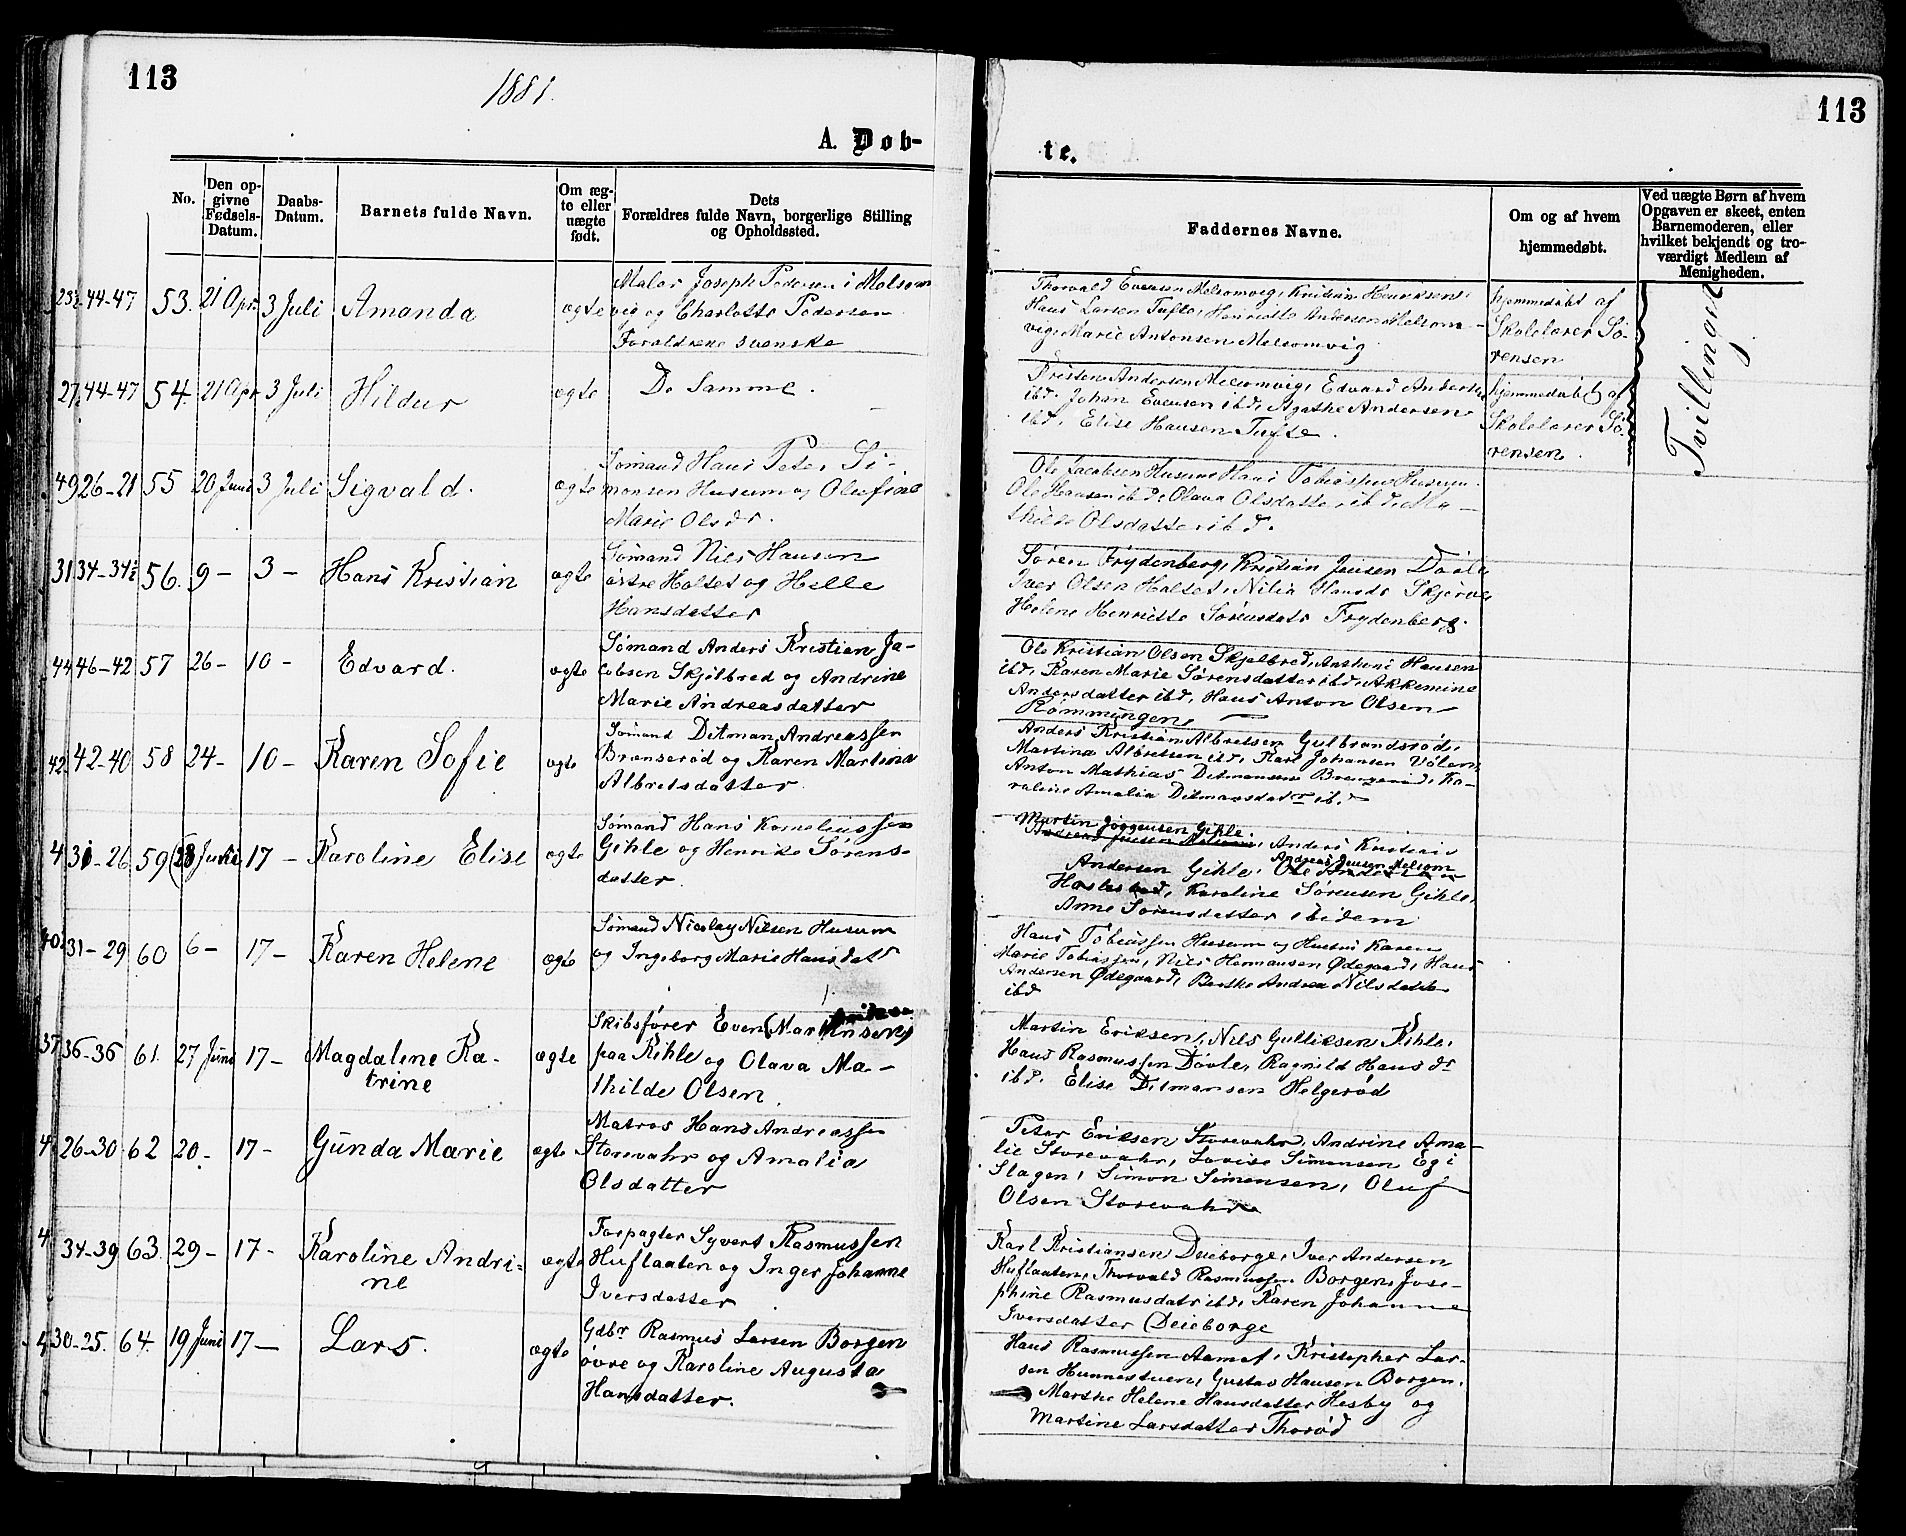 113
1881.
113
A. Døb-
te.
No.
Den op-
givne
Fødsels-
Datum.
Daabs-
Datum.
Barnets fulde Navn.
Om æg-
te eller
uægte
født.
Dets
Forældres fulde Navn, borgerlige Stilling
og Opholdssted.
Faddernes Navne.
Om og af hvem
hjemmedøbt.
Ved uægte Børn af hvem
Opgaven er skeet, enten
Barnemoderen, eller
hvilket bekjendt og tro-
værdigt Medlem af
Menigheden.
44-47 53. 21 Apr. 3 Juli Amanda ægte
Maler Joseph Pedersen i Melsom
vig og Charlotte Pedersen
Forældrene svenske
Thorvald Evensen Melsomvig, Kristian Henriksen,
Hans Larsen Tufte, Henriette Andersen Melsom-
vig, Marie Antonsen Melsomvig
hjemmedøbt af
Skolelærer Sø-
rensen
Tvillinger
27, 44-47 54. 21 Apr 3 Juli Hildur ægte
De Samme.
Kristen Andersen Melsomvig, Edvard Anders
ibd. Johan Evensen ibd, Agathe Andersen
ibd, Elise Hansen Tufte.
hjemmedøbt af
Skolelærer Sø-
rensen.
49 26-21 55 20 Juni 3 Juli Sigvald. ægte
Sømand Hans Peter Si-
monsen Husum og Olufine
Marie Olsdr.
Ole Jacobsen Husum, Hans Tobiassen Husum
Ole Hansen ibd, Olava Olsdatter ibd, Ma-
thilde Olsdatter ibd.
31 34-34½ 56. 9- 3- Hans Kristian ægte
Sømand Nils Hansen
østre Holtet og Helle
Hansdatter
Søren Frydenberg, Kristian Jensen Døvle
Iver Olsen Holtet, Nilia Hansdr Skjerve
Helene Henriette Sørensdatr Frydenberg.
44 46-42 57 26- 10- Edvard. ægte
Sømand Anders Kristian Ja-
cobsen Skjelbred og Andrine
Marie Andreasdatter
Ole Kristian Olsen Skjelbred, Anthoni Hansen
ibd, Karen Marie Sørensdatter ibd, Akkemine
Andersdatter ibd, Hans Anton Olsen
Rømmingen,
42 42-40 58 24- 10- Karen Sofie ægte
Sømand Ditman Andreassen
Brønserød og Karen Martina
Albretsdatter.
Anders Kristian Albretsen Gulbrandsrød,
Martina Albretsen ibd, Karl Johansen Vølen,
Anton Mathias Ditmansen Brøngerød, Ka-
roline Amalia Ditmansdatr ibd
4 31-26 59 (28 Juni 17- Karoline Elise ægte
Sømand Hans Korneliussen
Gihle og Henrike Sørens-
datter.
Martin Jørgensen Gihle.
Anders Kristian
Andersen Gihle, Andreas Jensen Melsom
Karoline Sørensen Gihle,
Anne Sørensdatter ibidem
40 31-29 60 6- 17- Karen Helene ægte
Sømand Nicolay Nilsen Husum
og Ingeborg Marie Hansdatr
Hans Tobiassen Husum og Hustru Karen
Marie Tobiassen, Nils Hermansen Ødegaard, Hans
Andersen Ødegaard, Berthe Andrea Nilsdatter
ibd
37 36-36 61. 27 Juni 17- Magdalene Ka-
trine ægte
Skibsfører Even (Martinsen)
paa Kihle og Olava Ma-
thilde Olsen.
Martin Eriksen, Nils Gulliksen Kihle,
Hans Rasmussen Døvle, Ragnild Hansdr
ibd. Elise Ditmansen Helgerød
4 26-30 62 20- 17- Gunda Marie ægte
Matros Hans Andreassen
Storevahr og Amalia
Olsdatter
Peter Eriksen Storevahr, Andrine Ama-
lie Storevahr, Lovise Simensen Eg i
Slagen, Simon Simensen, Oluf
Olsen Storevahr
4 34-39 63. 29- 17- Karoline Andri-
ne ægte
Forpagter Syvert Rasmussen
Huflaaten og Inger Johanne
Iversdatter
Karl Kristiansen Dueborge, Iver Andersen
Huflaaten, Thorvald Rasmussen Borgen, Jose-
phine Rasmusdatr ibd, Karen Johanne
Iversdatter (Deieborge
4 30-25. 64. 19 Juni 17- Lars. ægte
Gdbr Rasmus Larsen Borgen
øvre og Karoline Augusta
Hansdatter.
Hans Rasmussen Aamot, Kristopher Lar-
sen Hunnestuen, Gustav Hansen Borgen,
Marthe Helene Hansdatter Hesby og
Martine Larsdatter Thorød